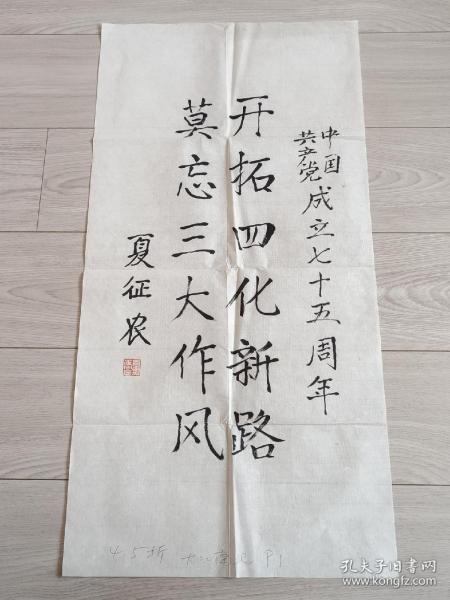 中国
共产党成立七十五周年
开拓四化新路
莫忘三大作风
夏征农
45折 P1
孔夫子旧书网